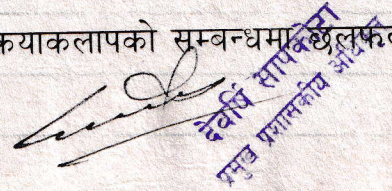 क्याकलापको सम्बन्धमा छलफल
देवर्षि सापकोटा
प्रमुख प्रशासकीय अधिकृत